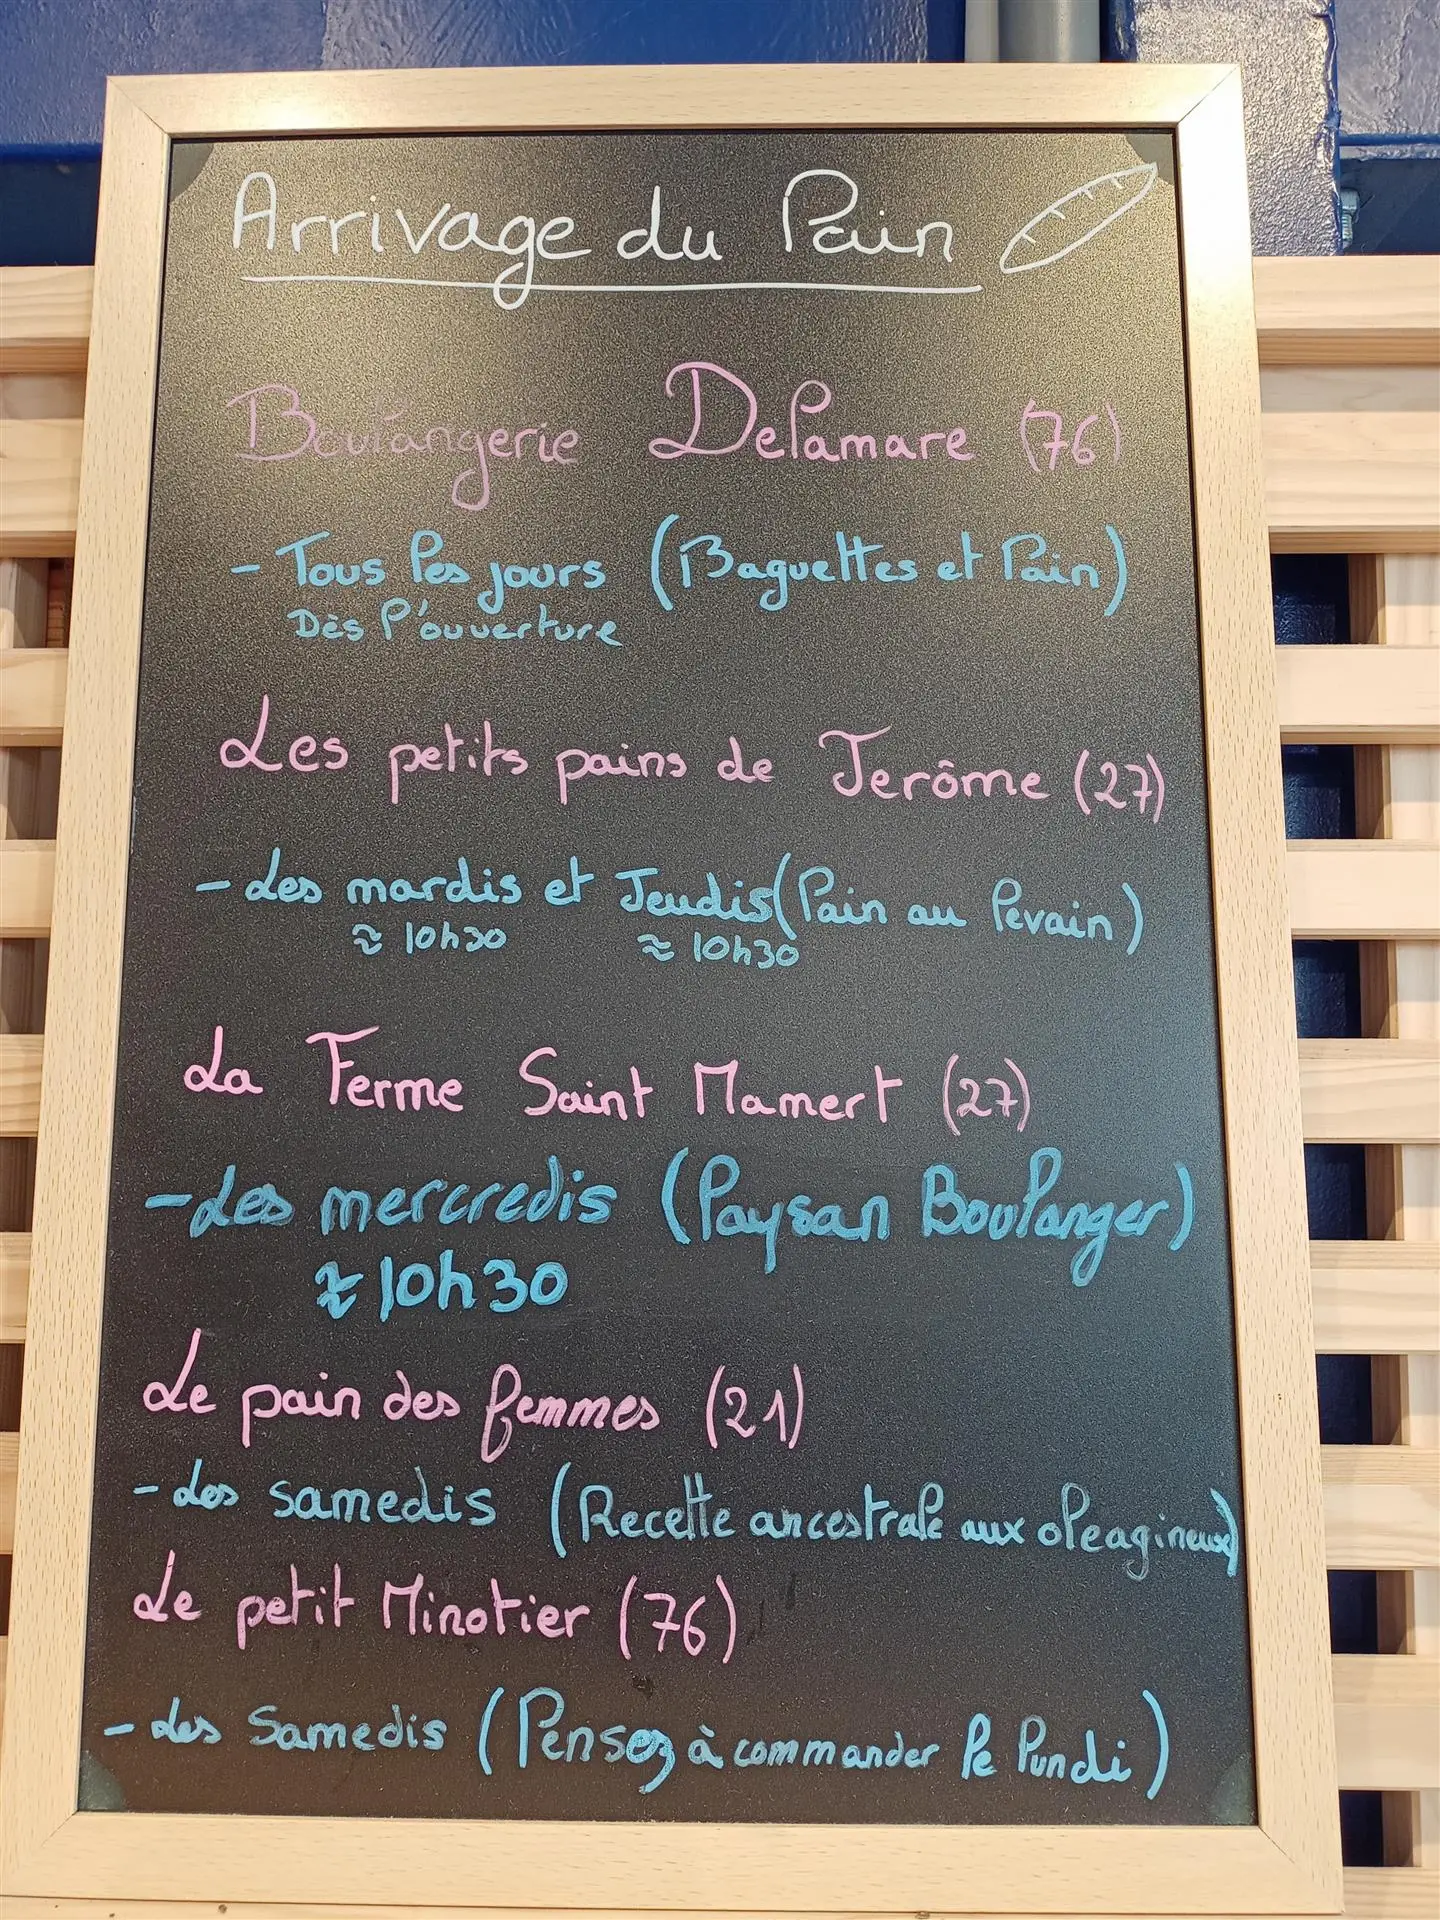 Arrivage du Pain
Boulangerie Delamare (76)
- Tous les jours (Baguettes et Pain)
Dès l'ouverture
Les petits pains de Jerôme (27)
- Les mardis et Jeudis (Pain au levain)
≈ 10h30 ≈ 10h30
La Ferme Saint Mamert (27)
- Les mercredis (Paysan Boulanger)
≈ 10h30
Le pain des femmes (21)
- Les samedis (Recette ancestrale aux oleagineux)
Le petit Minotier (76)
- Les Samedis (Pensez à commander le lundi)